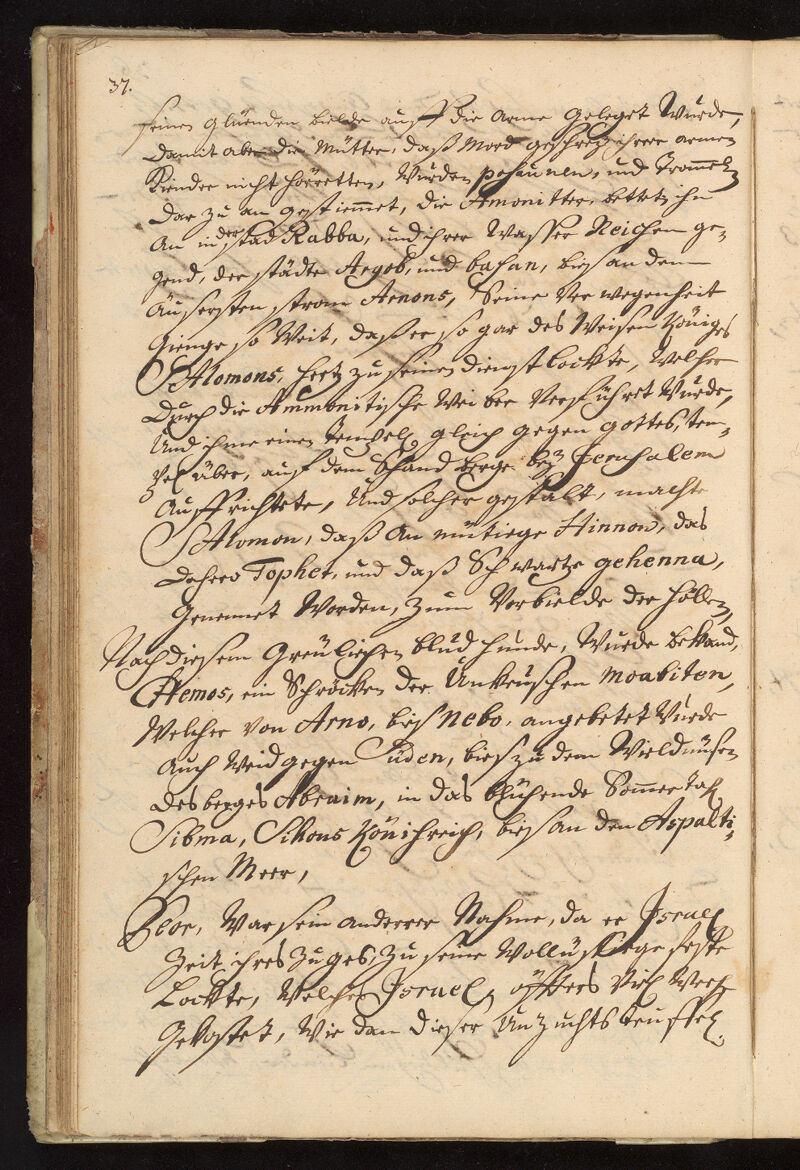 37.
seinen gluenden bielde auff die arme geleget wurde,
damit aber die Mütter, daß Mord geschrey ihrer armen
Kinder nicht höretten, wurden posaunen, und Trommeln
dar zu an gestiemmet, die Amonitter bettet ihn
An in der stad Rabba, und ihrer Wasser Reichen ge-
gend, der städte Argob, und basan, bies an dem
äusersten strom Arnons, Seine Ver wegenheit
gienge so Weit, daß er so gar des Weisen Königes
SAlomons, hertz zu seinen dienst lockte, welcher
durch die Ammonitische Wei ber Verführet Wurde,
Und ihme einen Tempel, gleich gegen gottes, tem-
pel über, auf dem Schand berge bey Jerusalem
Auff richtete, Und solcher gestalt, machte
SAlomon, daß An mütiege Hinnon, das
dahero Tophet, und daß Schwartze gehenna,
Genennet Worden, zum Vorbielde der höllen,
Nach diesem Greülichen blud hunde, Wurde bekand,
CHemos, ein Schröcken der Unkeuschen Moabiten,
Welcher von Arno, bies Nebo, angebetet Wurde
Auch Weid gegen Süden, bies zu dem Wieldnüsen
des berges Abraim, in das blühende Sommer tahl
Sibma, Sihons Königreich, bies an den Aspalti-
schen Meer,
Peor, War sein anderer Nahme, da er Israel
Zeit ihres Zuges, zu seine Wollüstiege feste
Lockte, Welches Israel, öffters Viel Weh
Gekostet, Wie dan dieser Unzuchts teuffel,